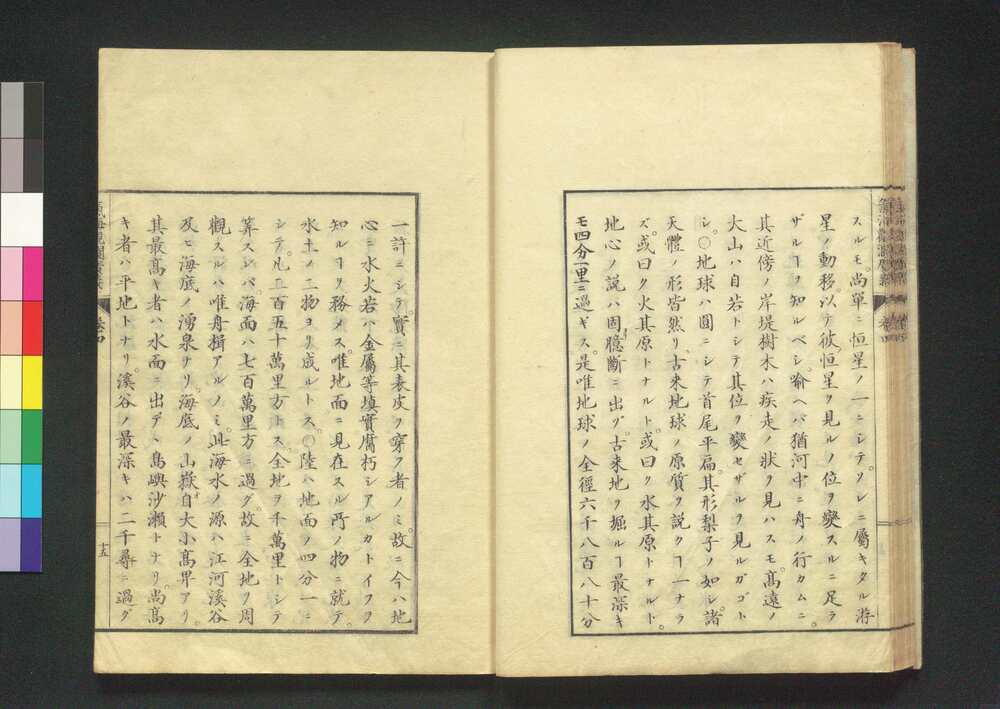 スルモ。尚單ニ恒星ノ一ニシテ。ソレニ屬キタル游
星ノ動移以テ彼恒星ヲ見ルノ位ヲ變スルニ足ラ
ザルヿヲ知ルベシ。喩ヘバ猶河中ニ舟ノ行カムニ。
其近傍ノ岸堤樹木ハ疾走ノ狀ヲ見ハスモ。髙遠ノ
大山ハ自若トシテ其位ヲ變セザルヲ見ルガゴト
シ。○地球ハ圓ニシテ首尾平扁。其形梨子ノ如シ。諸
天體ノ形皆然リ。古来地球ノ原質ヲ説クヿ一ナラ
ズ。或曰ク火其原トナルト。或曰ク水其原トナルト。
地心ノ説ハ固臆斷ニ出ヅ。古来地ヲ掘ルヿ最深キ
モ四分一里ニ過ギス。是唯地球ノ全徑六千八百八十分
一許ニシテ。實ニ其表皮ヲ穿フ者ノミ。故ニ今ハ地
心ニ水火若ハ金屬等填實腐朽シアルカトイフヲ
知ルヿヲ務メス。唯地面ニ見在スル所ノ物ニ就テ。
水土ノ二物ヨリ成ルトス。○陸ハ地面ノ四分一ニ
シテ。凡二百五十萬里方トス。全地ヲ千萬里トシテ
筭スレバ。海面ハ七百萬里方ニ過グ。故ニ全地ヲ周
觀スルハ唯舟楫アルノミ。此海水ノ源ハ江河溪谷
及ヒ海底ノ湧泉ナリ。海底ノ山嶽自大小髙卑アリ。
其最髙キ者ハ水面ニ出デヽ島嶼沙瀬トナリ。尚髙
キ者ハ平地トナリ。溪谷ノ最深キハ二千尋ニ過グ
卷四
十五